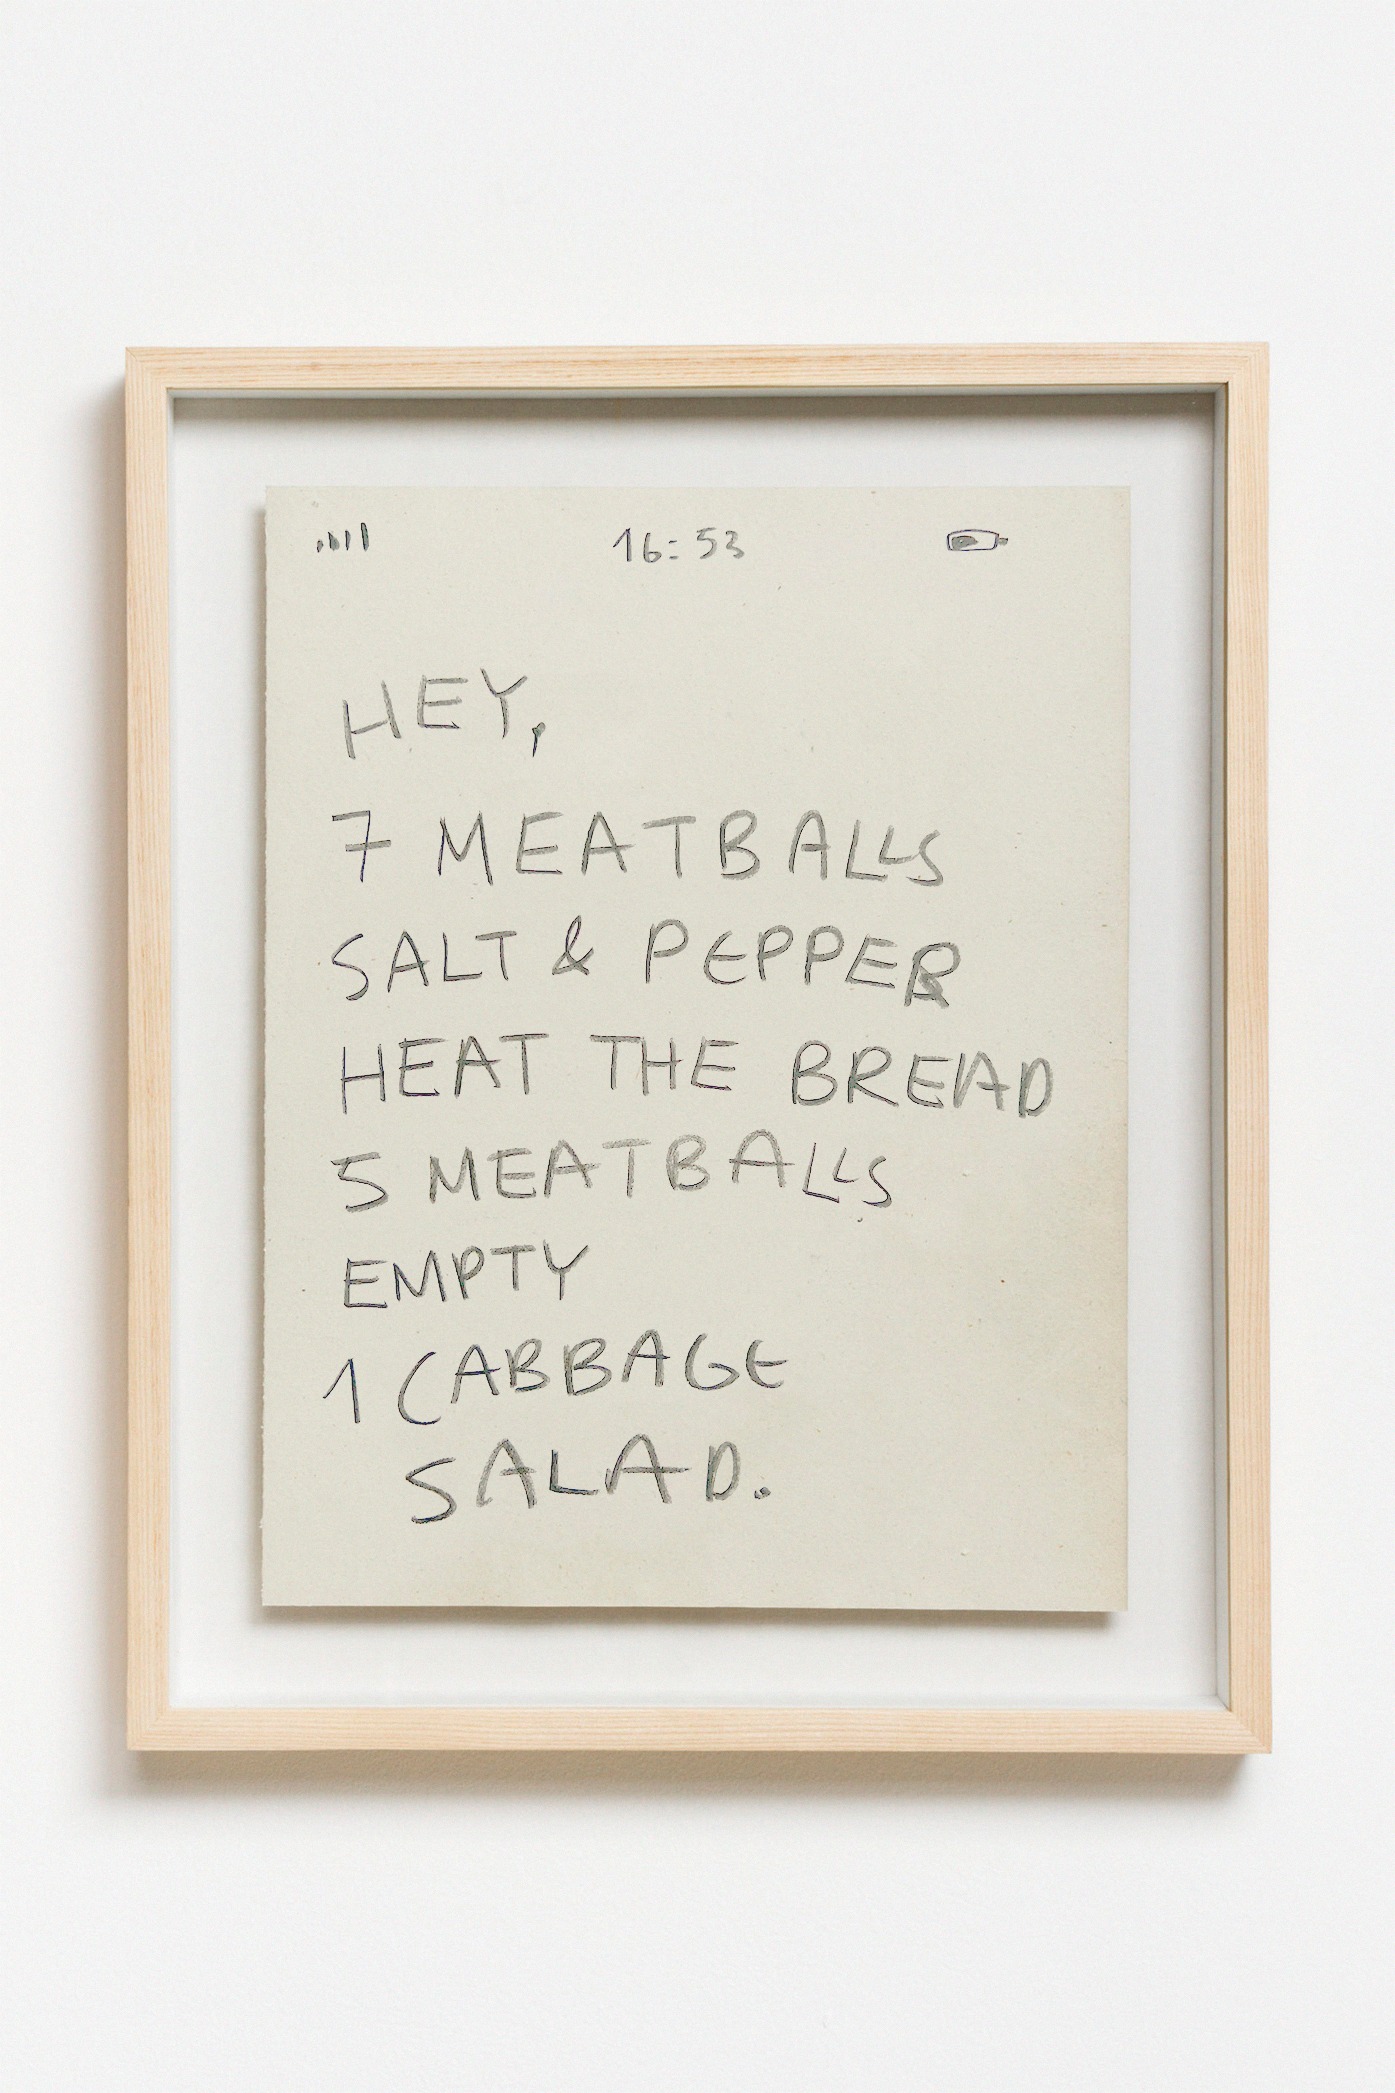 16:53
HEY,
7 MEATBALLS
SALT & PEPPER
HEAT THE BREAD
5 MEATBALLS
EMPTY
1 CABBAGE
SALAD.